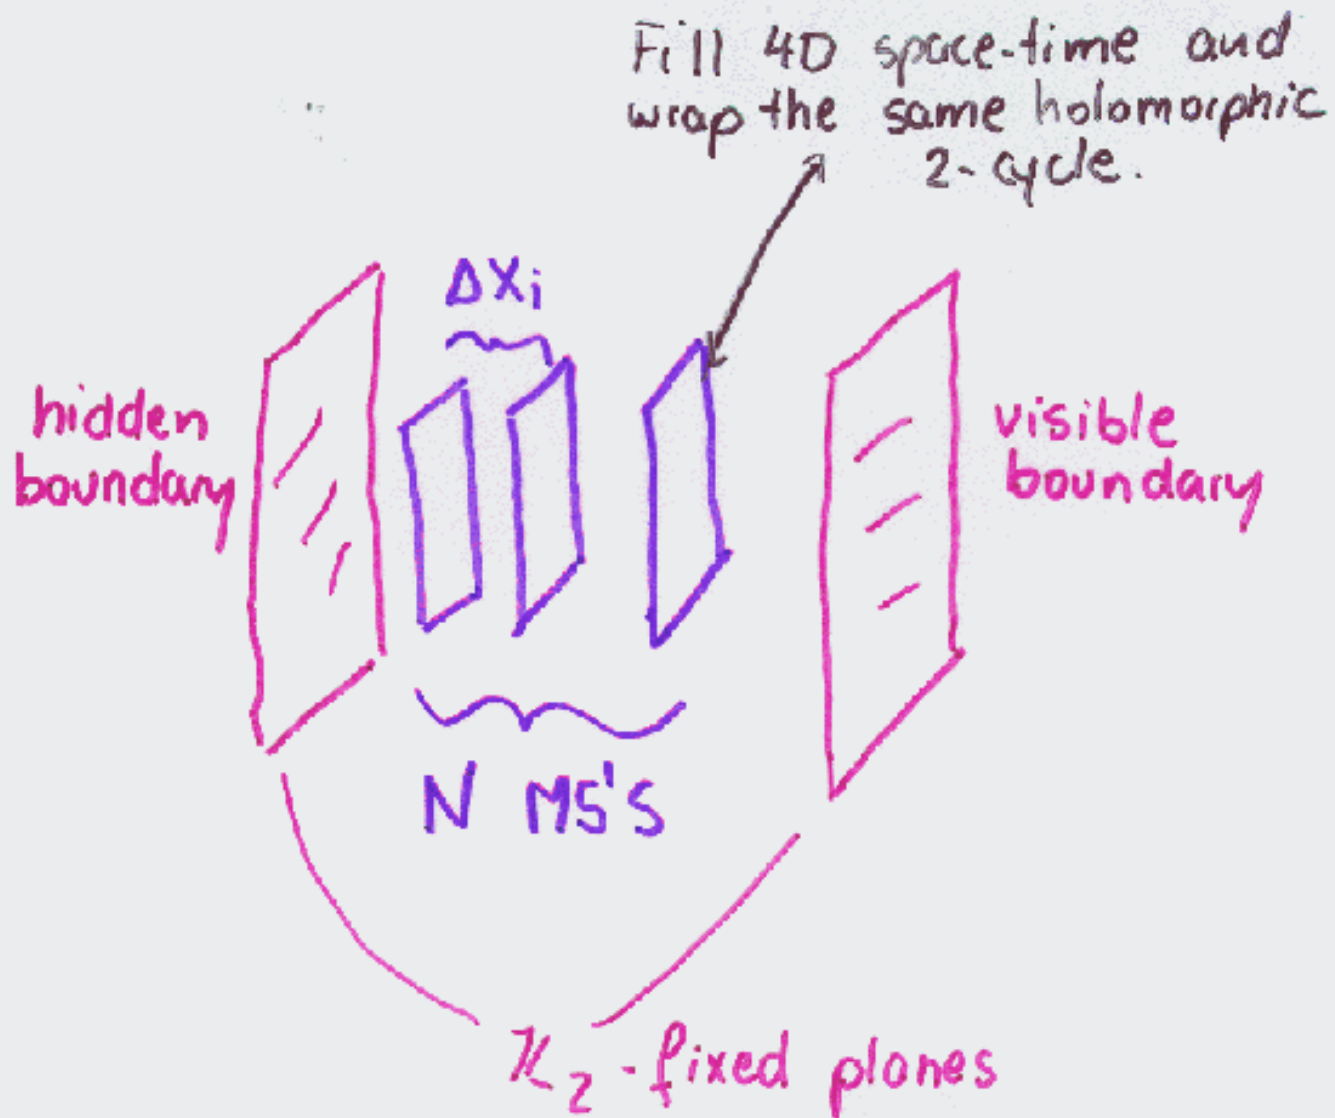 Fill 4D space-time and
wrap the same holomorphic
2-cycle.
ΔXi
hidden
boundary
visible
boundary
N M5's
ℤ2-fixed planes